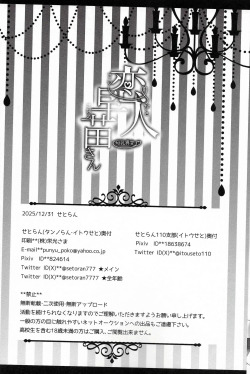 恋人
2025/12/31 せとらん
せとらん(タンノらん・イトウせと)奥付
印刷**(株)栄光さま
E-mail**punyu_poko@yahoo.co.jp
Pixiv ID**824614
Twitter ID(X)**@setoran777 ★メイン
Twitter ID(X)**@setoran7777 ★全年齢
せとらん110支部(イトウせと)奥付
Pixiv ID**18638674
Twitter ID(X)**@itouseto110
**禁止**
無断転載・二次使用・無断アップロード
活動を続けられなくなりますのでご理解いただきますようお願い申し上げます。
一般の方の目に触れやすいネットオークションへの出品もご遠慮下さい。
高校生を含む18歳未満の方はご購入、ご閲覧出来ません。